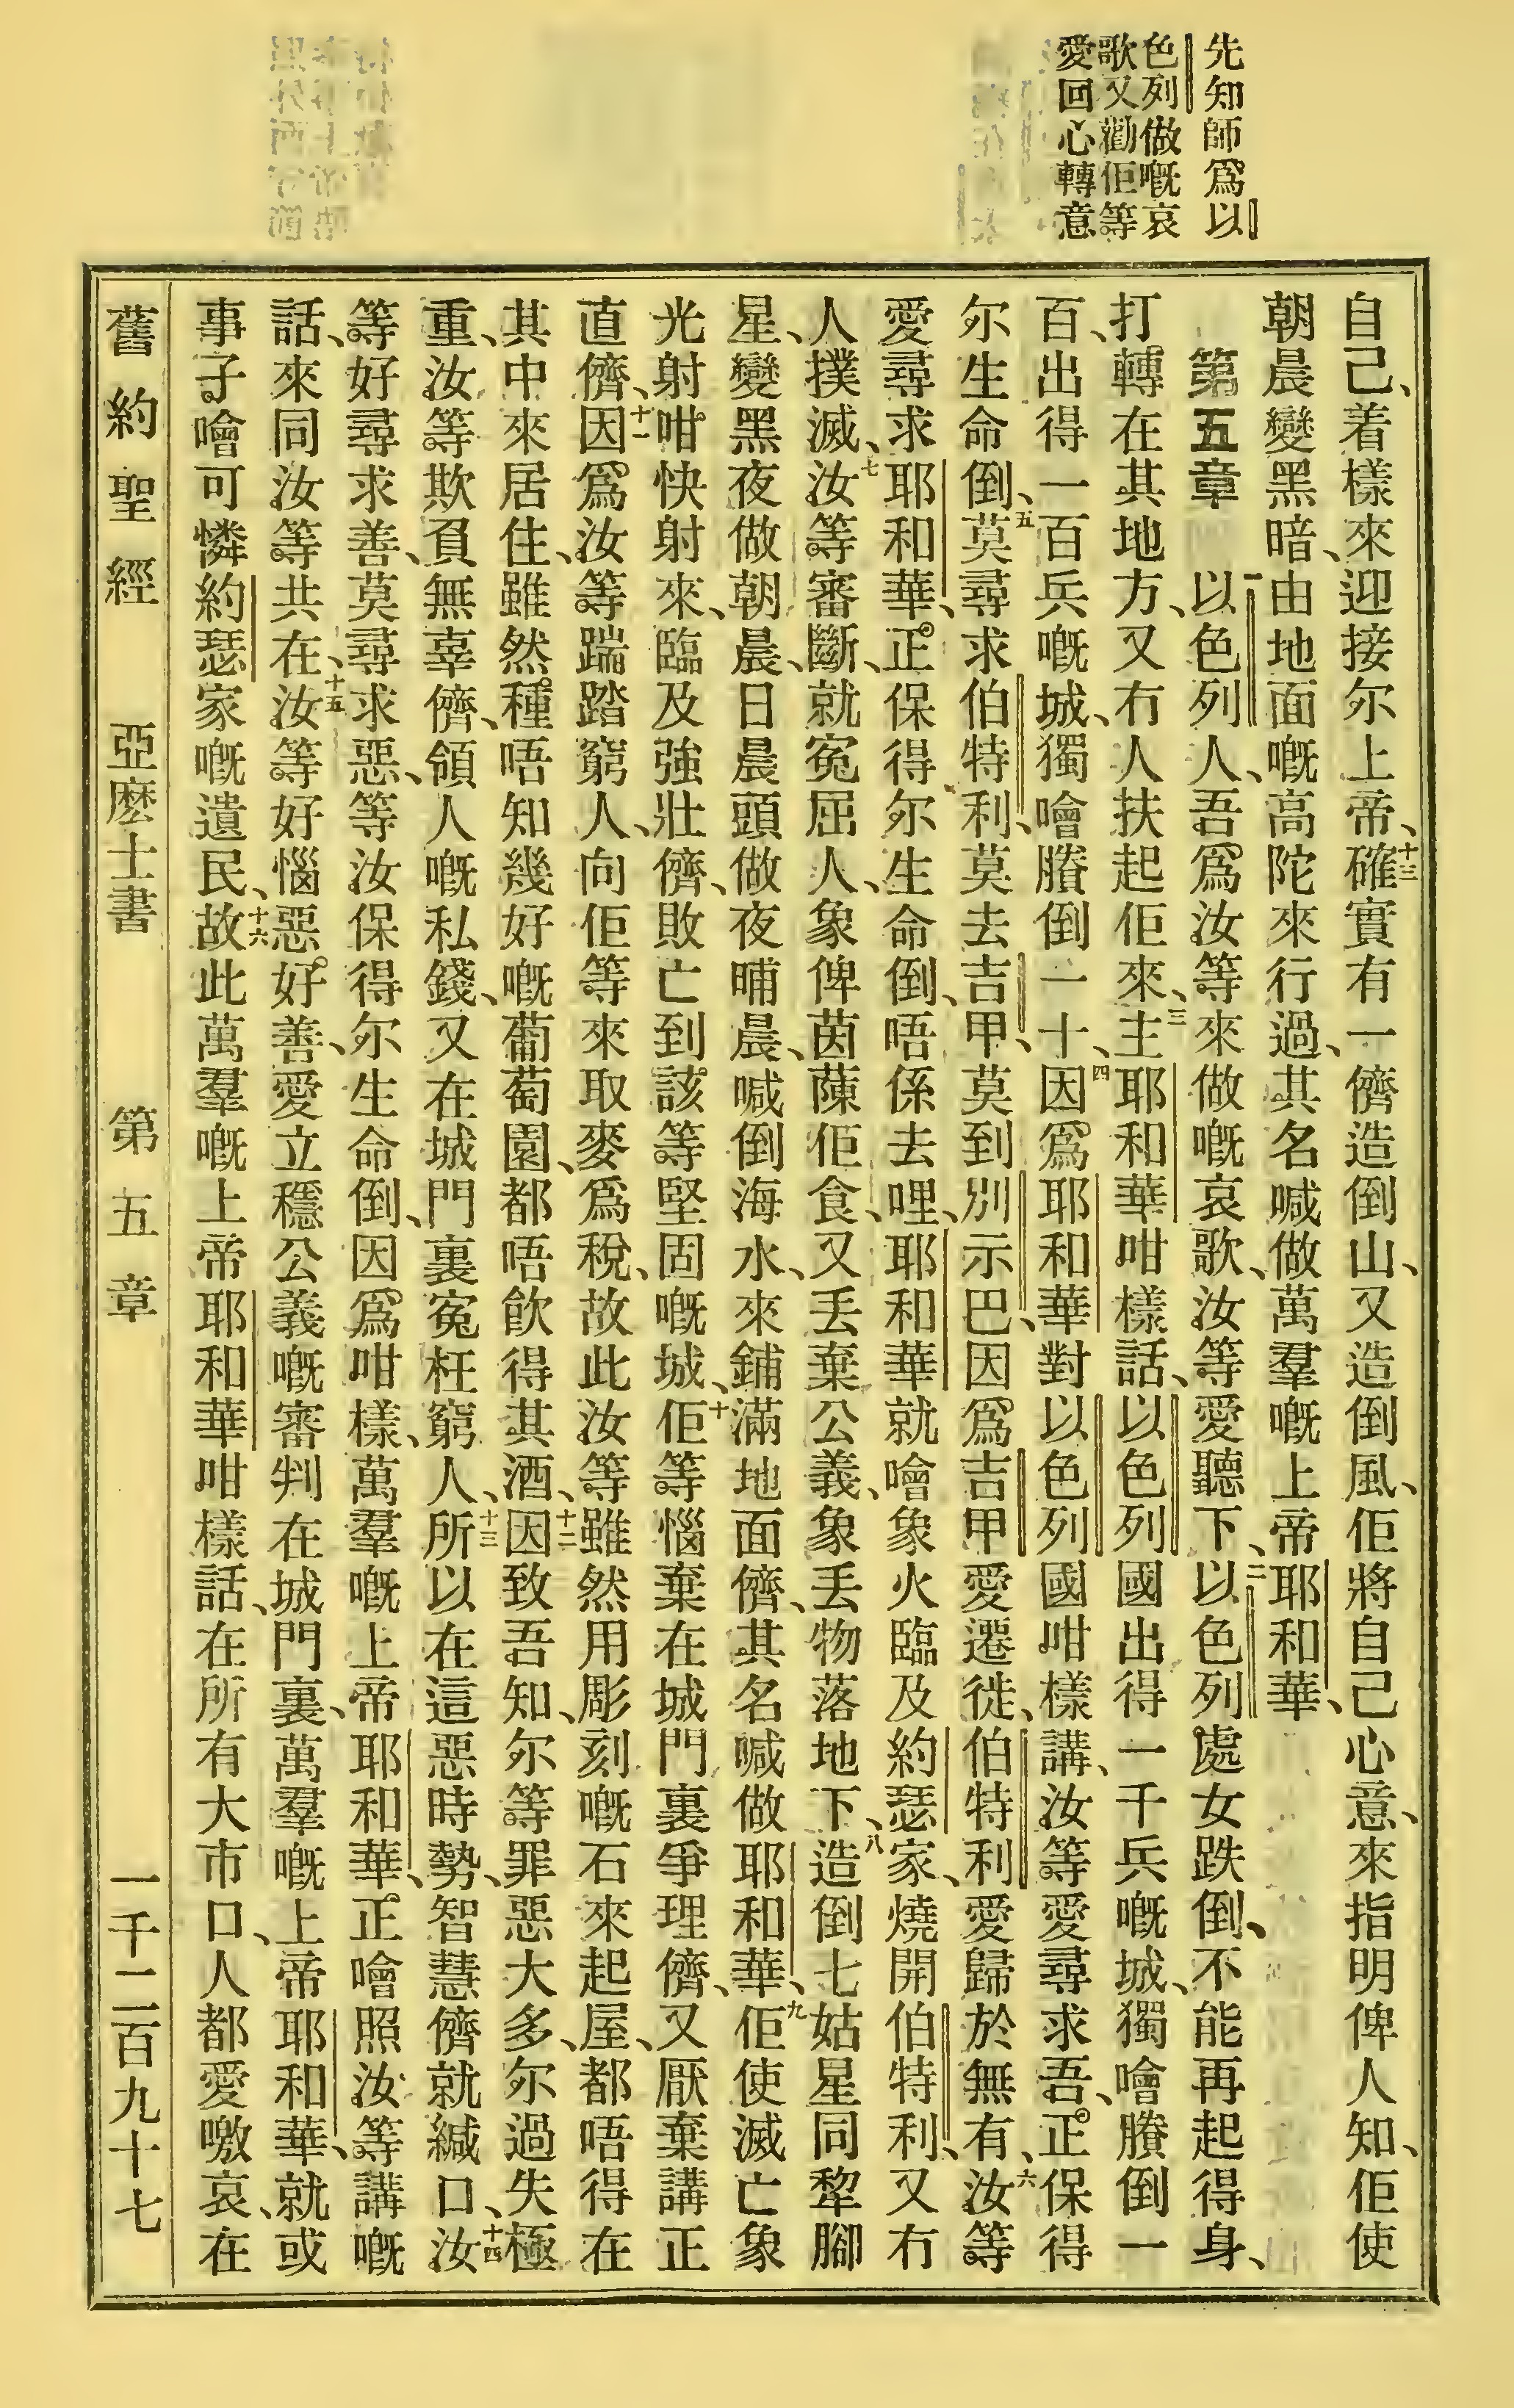 先知師爲以
色列做嘅哀
歌又勸佢等
愛回心轉意
自己、着樣來迎接尔上帝、十三確實有一儕造倒山、又造倒風、佢將自己心意、來指明俾人知、佢使
朝晨變黑暗、由地面嘅高陀來行過、其名喊做萬羣嘅上帝耶和華、
第五章 一以色列人、吾爲汝等來做嘅哀歌、汝等愛聽下、二以色列處女跌倒、不能再起得身、
打轉在其地方、又冇人扶起佢來、三主耶和華咁樣話、以色列國出得一千兵嘅城、獨噲賸倒一
百、出得一百兵嘅城、獨噲賸倒一十、四因爲耶和華對以色列國咁樣講、汝等愛尋求吾、正保得
尔生命倒、五莫尋求伯特利、莫去吉甲、莫到別示巴、因爲吉甲愛遷徙、伯特利愛歸於無有、六汝等
愛尋求耶和華、正保得尔生命倒、唔係去哩、耶和華就噲象火臨及約瑟家、燒開伯特利、又冇
人撲滅、七汝等審斷、就冤屈人、象俾茵蔯佢食、又丢棄公義、象丢物落地下、八造倒七姑星同犂腳
星、變黑夜做朝晨、日晨頭做夜晡晨、喊倒海水、來鋪滿地面儕、其名喊做耶和華、九佢使滅亡象
光射咁快射來、臨及強壯儕、敗亡到該等堅固嘅城、十佢等惱棄在城門裏爭理儕、又厭棄講正
直儕、十一因爲汝等踹踏窮人、向佢等來取麥爲稅、故此汝等雖然用彫刻嘅石來起屋、都唔得在
其中來居住、雖然種唔知幾好嘅葡萄園、都唔飮得其酒、十二因致吾知、尔等罪惡大多、尔過失極
重、汝等欺負無辜儕、領人嘅私錢、又在城門裏冤枉窮人、十三所以在這惡時勢、智慧儕就緘口、十四汝
等好尋求善、莫尋求惡、等汝保得尔生命倒、因爲咁樣、萬羣嘅上帝耶和華、正噲照汝等講嘅
話、來同汝等共在、十五汝等好惱惡好善、愛立穩公義嘅審判在城門裏、萬羣嘅上帝耶和華、就或
事子噲可憐約瑟家嘅遺民、十六故此萬羣嘅上帝耶和華咁樣話、在所有大市口、人都愛噭哀、在
舊約聖經 亞麽士書 第五章 一千二百九十七